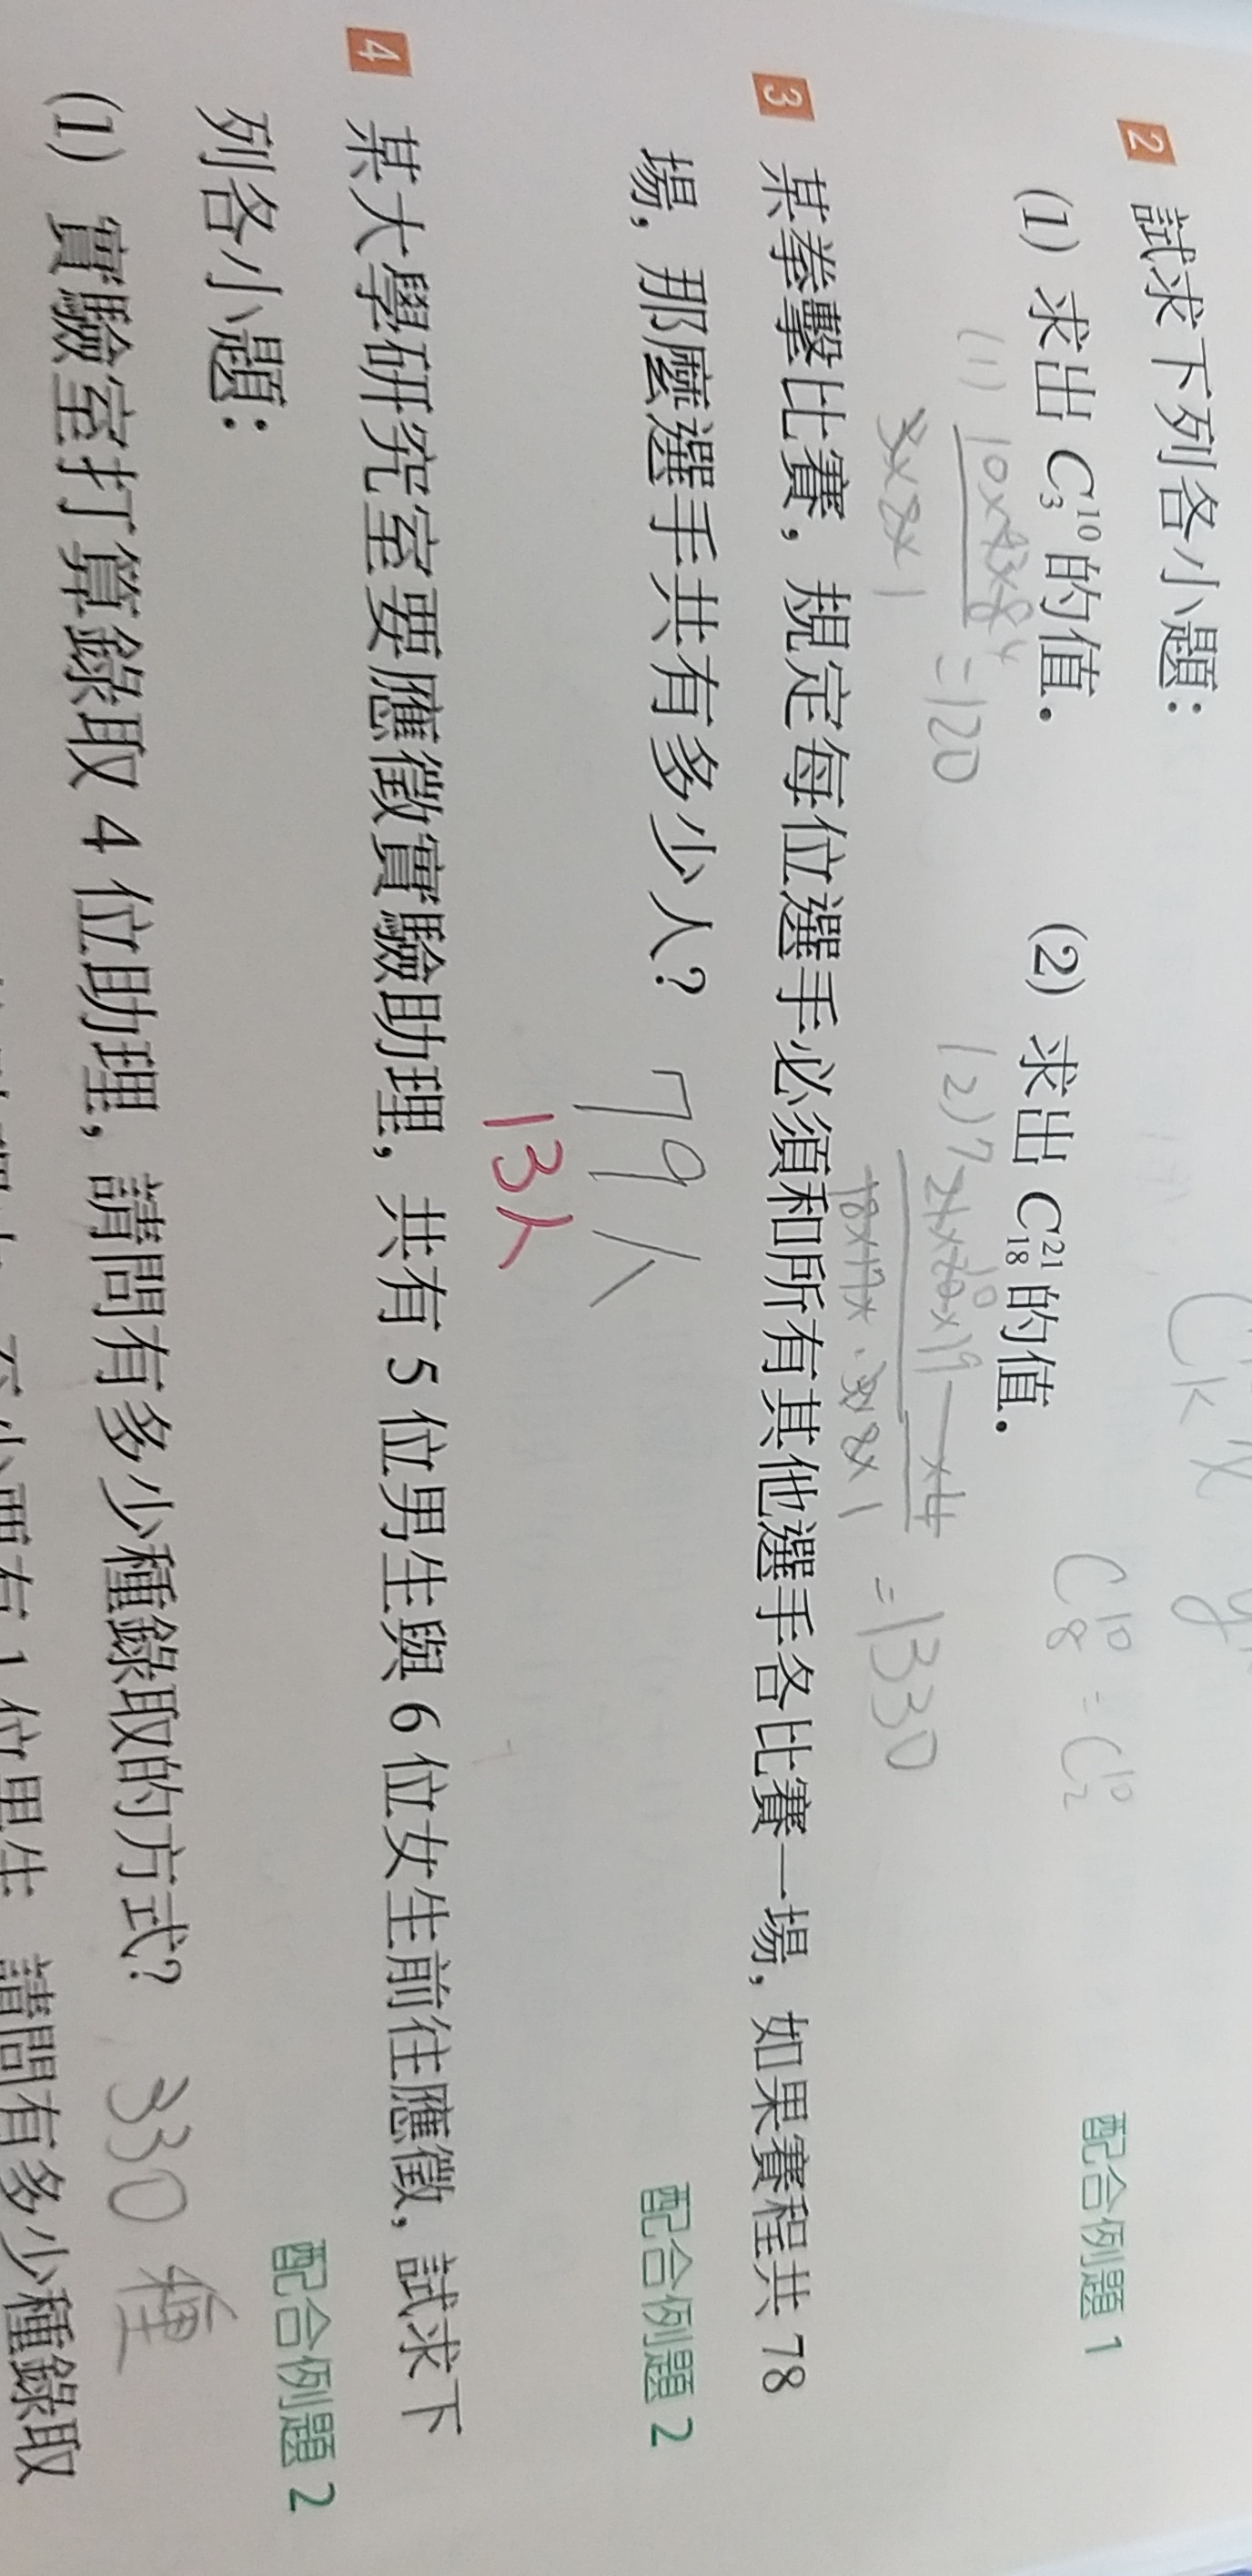 2 試求下列各小題：
(1) 求出 C₃¹⁰ 的值． (2) 求出 C₁₈²¹ 的值．
配合例題 1
C₈¹⁰ = C₂¹⁰
(1) 10×9×8 = 120
3×2×1
(2) 21×20×19
= 1330
3 某拳擊比賽，規定每位選手必須和所有其他選手各比賽一場，如果賽程共 78
場，那麼選手共有多少人？ 79人
配合例題 2
13人
4 某大學研究室要應徵實驗助理，共有 5 位男生與 6 位女生前往應徵，試求下
列各小題：
配合例題 2
(1) 實驗室打算錄取 4 位助理，請問有多少種錄取的方式？ 330 種
至少要有 1 位男生 請問有多少種錄取